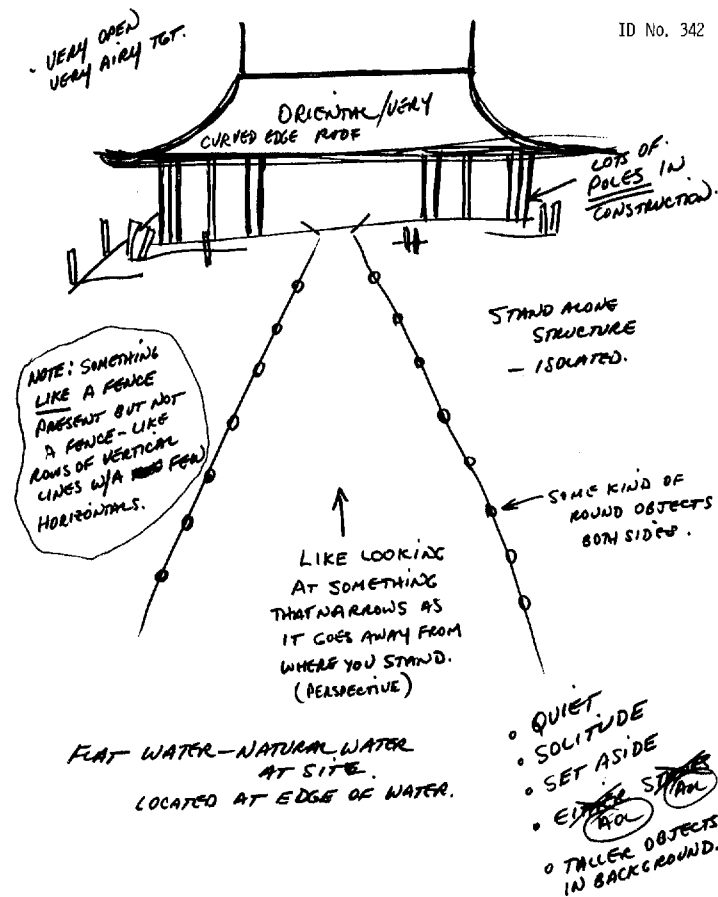 ID No. 342
• VERY OPEN
VERY AIRY TGT.
ORIENTAL/VERY
CURVED EDGE ROOF
LOTS OF
POLES IN
CONSTRUCTION.
STAND ALONE
STRUCTURE
– ISOLATED.
NOTE: SOMETHING
LIKE A FENCE
PRESENT BUT NOT
A FENCE–LIKE
ROWS OF VERTICAL
LINES W/A FEW
HORIZONTALS.
SOME KIND OF
ROUND OBJECTS
BOTH SIDES.
LIKE LOOKING
AT SOMETHING
THAT NARROWS AS
IT GOES AWAY FROM
WHERE YOU STAND.
(PERSPECTIVE)
FLAT WATER–NATURAL WATER
AT SITE.
LOCATED AT EDGE OF WATER.
• QUIET
• SOLITUDE
• SET ASIDE
• EITHER
AOL AOL
• TALLER OBJECTS
IN BACKGROUND.